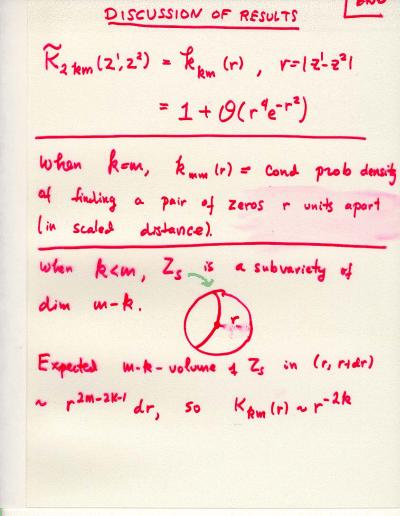 DISCUSSION OF RESULTS
K̃₂ₖₘ(z¹,z²) = kₖₘ(r), r=|z¹-z²|
= 1 + O(r⁴e^{-r²})
When k=m, kₘₘ(r) = Cond prob density
of finding a pair of zeros r units apart
(in scaled distance).
When k<m, Zₛ is a subvariety of
dim m-k.
r
Expected m-k-volume of Zₛ in (r, r+dr)
~ r^{2m-2k-1} dr, so Kₖₘ(r) ~ r^{-2k}